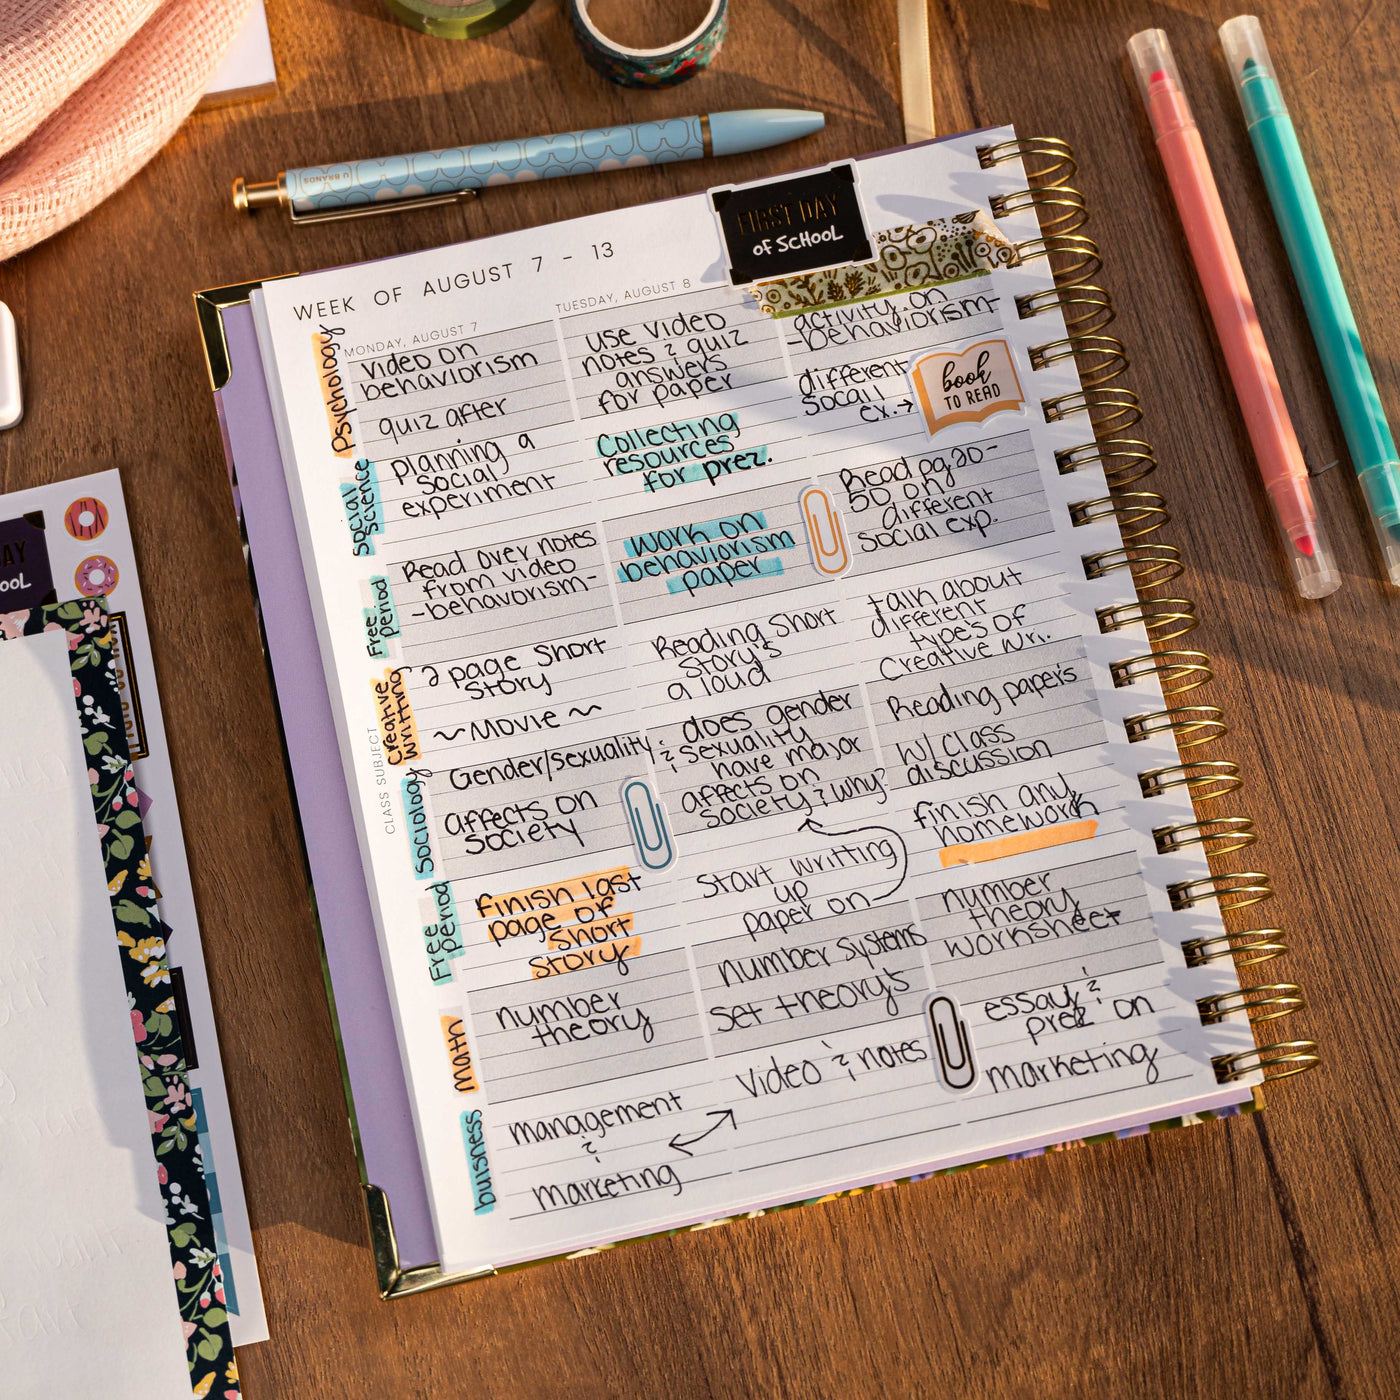 U BRANDS
FIRST DAY
of SCHOOL
WEEK OF AUGUST 7 - 13
MONDAY, AUGUST 7
TUESDAY, AUGUST 8
CLASS SUBJECT
Psychology
video on
behaviorism
quiz after
use video
notes & quiz
answers
for paper
activity on
-behaviorism-
different
socail
ex.→
book
TO READ
Social
Science
planning a
social
experiment
Collecting
resources
for prez.
Read pg 20-
50 on
different
social exp.
Free
Period
Read over notes
from video
-behavorism-
work on
behaviorism
paper
talk about
different
types of
Creative wri.
Creative
Writting
2 page Short
story
~Movie~
Reading Short
story's
a loud
Reading papers
w/ class
discussion
Sociology
Gender/sexuality
affects on
society
does gender
& sexuality
have major
affects on
society & why?
finish any
homework
Free
period
finish last
page of
short
story
Start writting
up
paper on
number
theory
worksheet
Math
number
theory
number systems
set theory's
essay &
prez on
marketing
buisness
management
&
marketing
Video & notes
AY
OOL